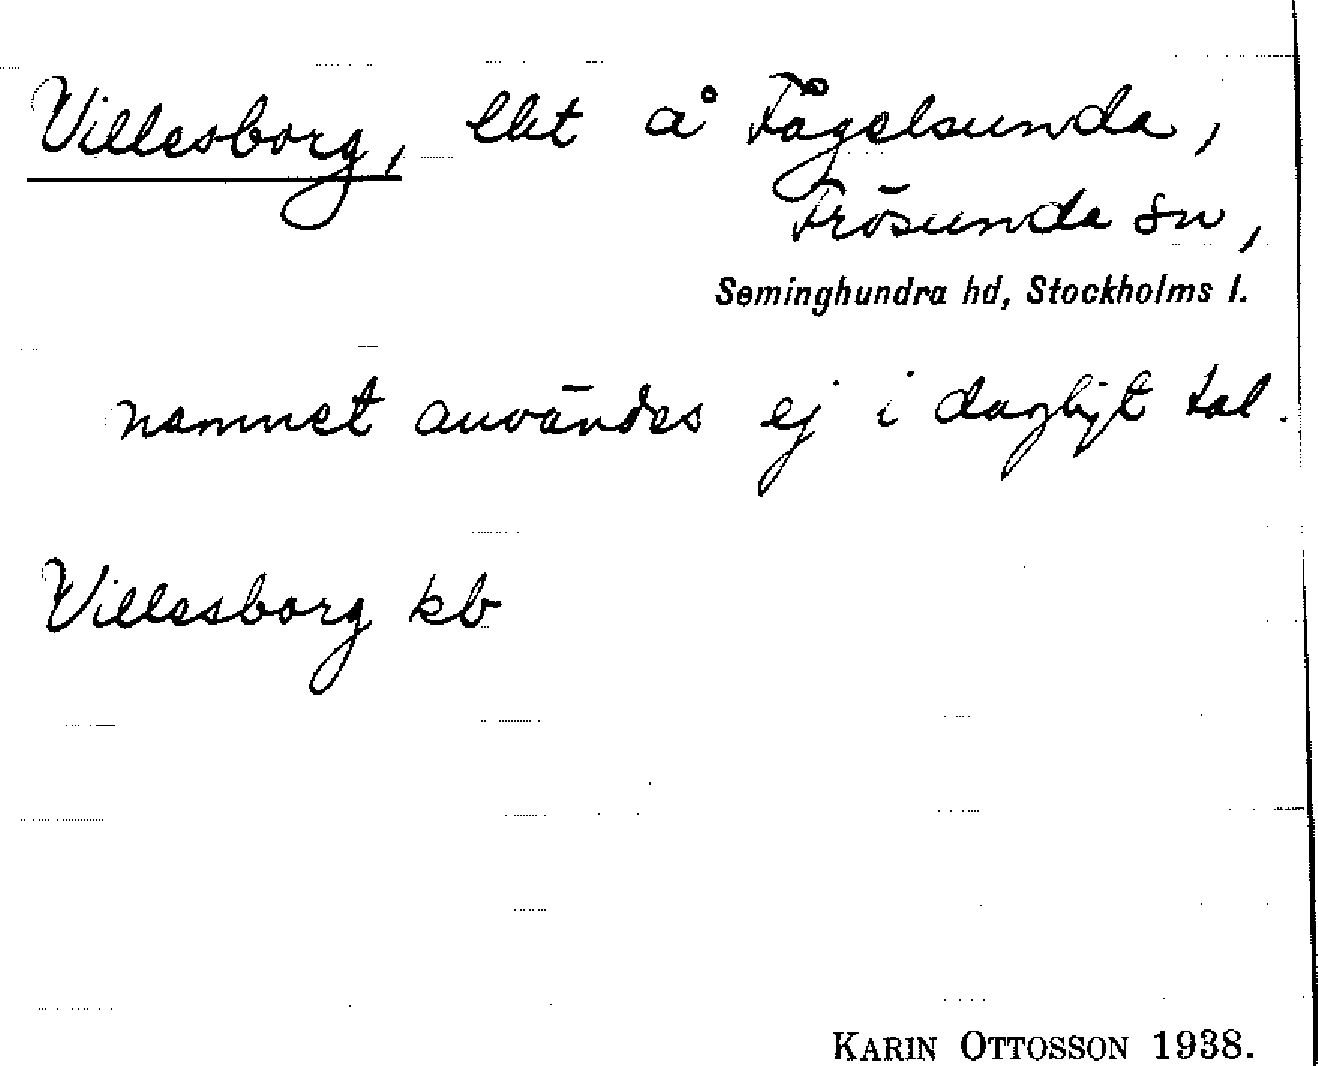 Villesborg, lht å Fågelsunda,
Frösunda sn,
Seminghundra hd, Stockholms l.
namnet användes ej i dagligt tal.
Villesborg kb
KARIN OTTOSSON 1938.